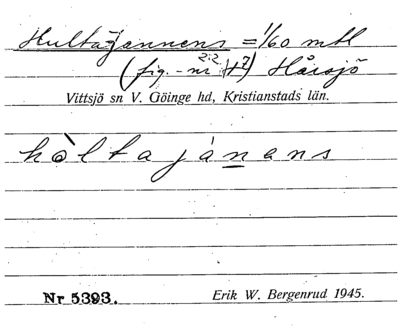 Hultajannens = 1/60 mtl
(fig.-nr 2:2 H7) Hårsjö
Vittsjö sn V. Göinge hd, Kristianstads län.
hòltajànans
Nr 5393.
Erik W. Bergenrud 1945.